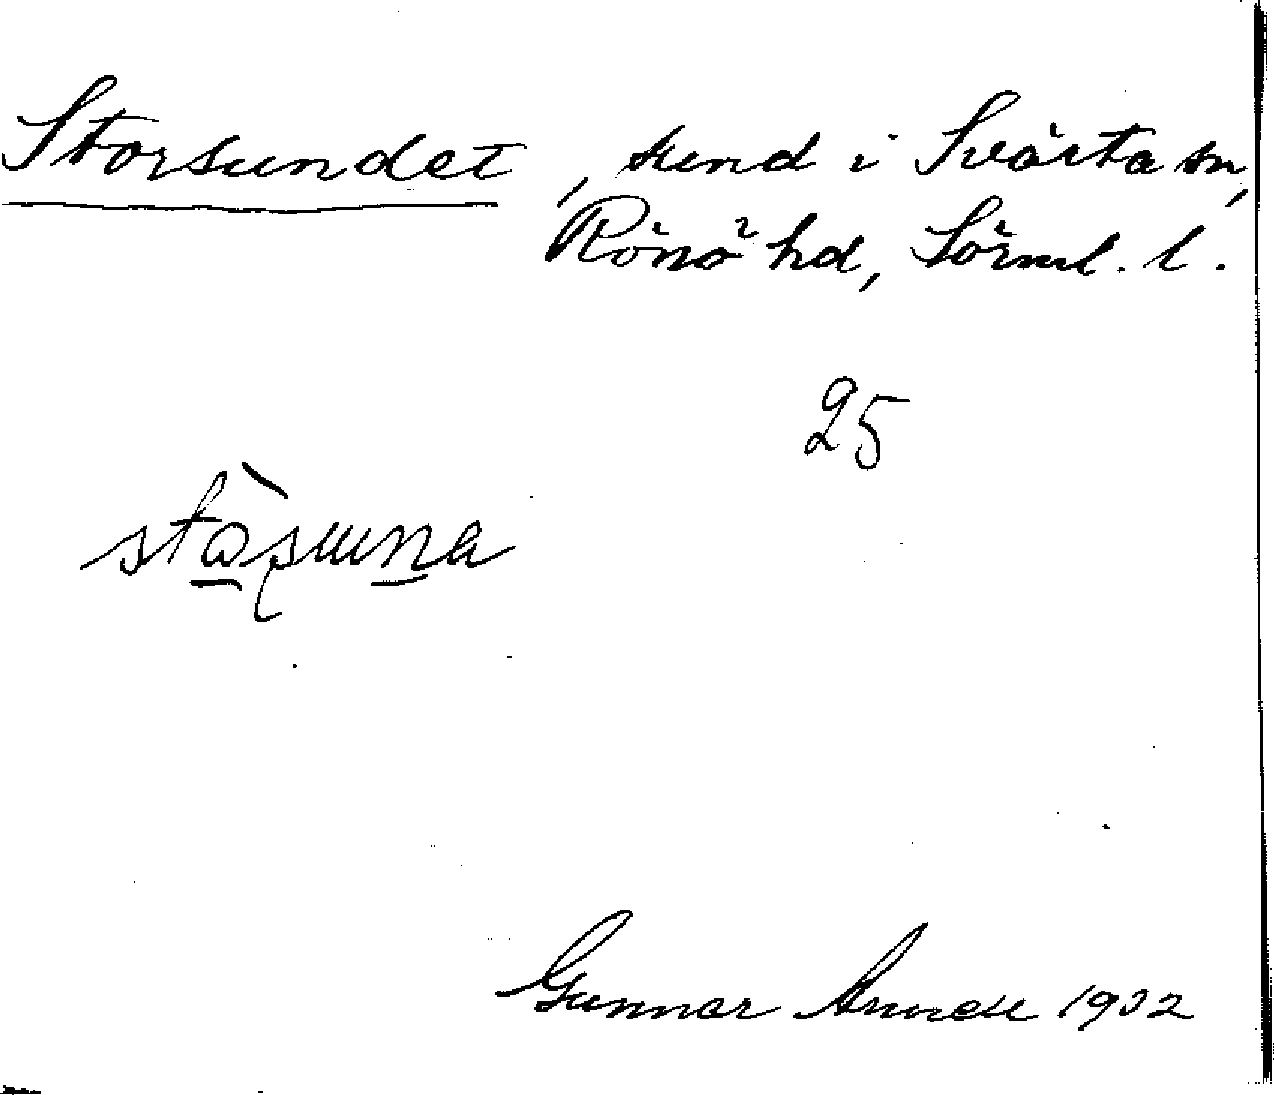 Storsundet, sund i Svärta sn,
Rönö hd, Sörml. l.
25
Gunnar 1932